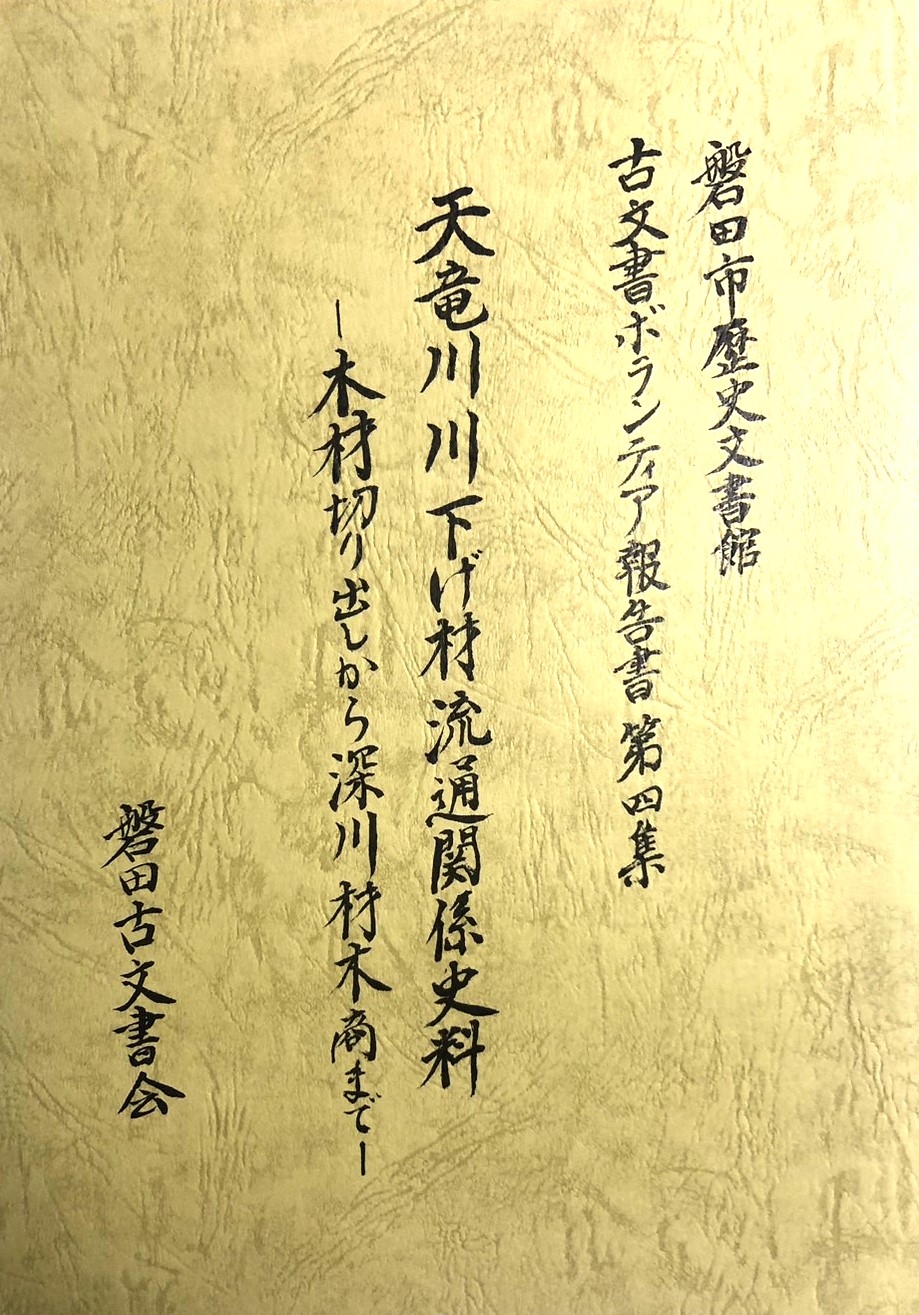 磐田市歴史文書館
古文書ボランティア報告書 第四集
天竜川川下げ材流通関係史料
―木材切り出しから深川材木商まで―
磐田古文書会